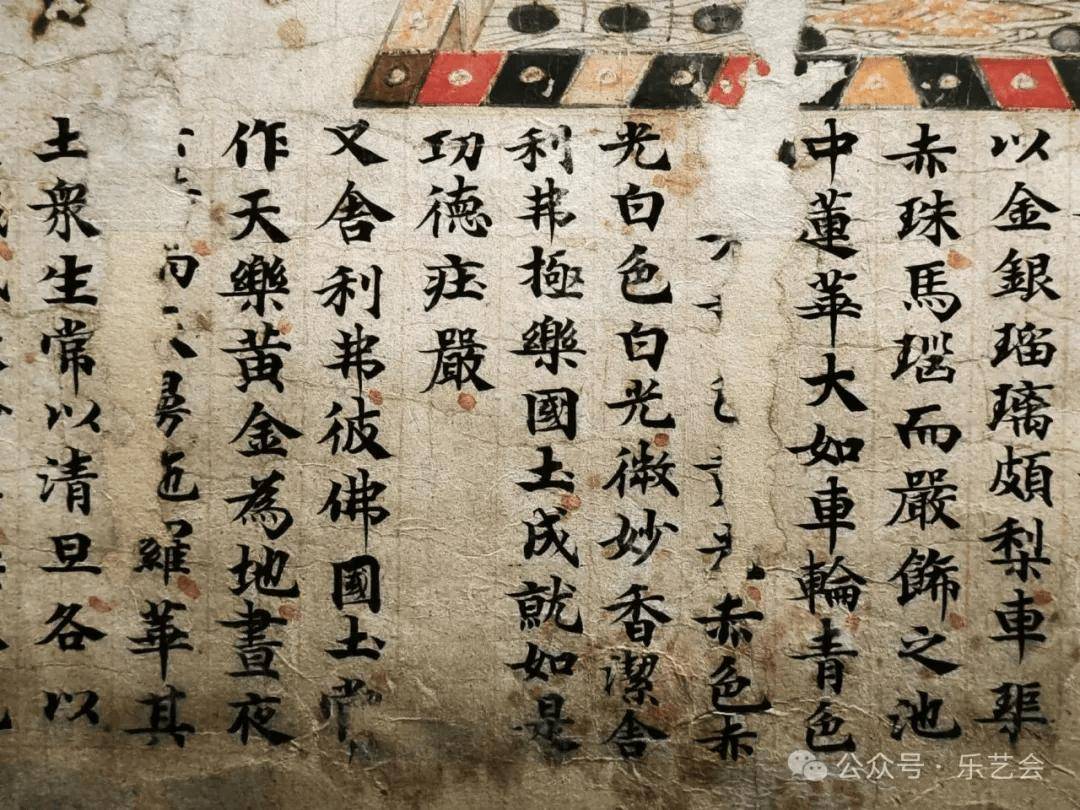 以金銀瑠璃頗梨車𤦲
赤珠馬瑙而嚴飾之池
中蓮華大如車輪青色
赤色赤
光白色白光微妙香潔舍
利弗極樂國土成就如是
功德莊嚴
又舍利弗彼佛國土常
作天樂黃金為地晝夜
曼陁羅華其
土衆生常以清旦各以
公众号·乐艺会